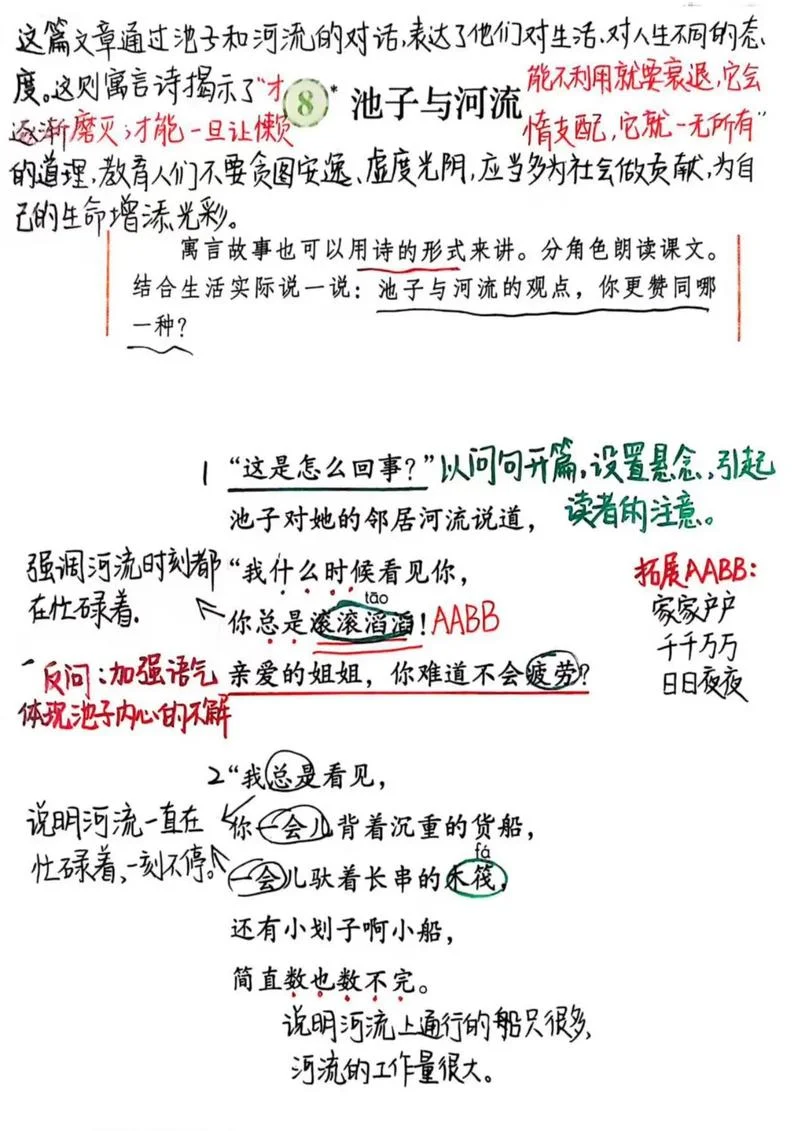 这篇文章通过池子和河流的对话,表达了他们对生活、对人生不同的态
度。这则寓言诗揭示了“才能不利用就要衰退,它会
8* 池子与河流
逐渐磨灭;才能一旦让懒惰支配,它就一无所有”
的道理,教育人们不要贪图安逸、虚度光阴,应当多为社会做贡献,为自
己的生命增添光彩。
寓言故事也可以用诗的形式来讲。分角色朗读课文。
结合生活实际说一说:池子与河流的观点,你更赞同哪
一种?
1 “这是怎么回事?”以问句开篇,设置悬念,引起
读者的注意。
池子对她的邻居河流说道,
强调河流时刻都
在忙碌着.
“我什么时候看见你,
tāo
你总是滚滚滔滔!AABB
拓展AABB:
家家户户
千千万万
日日夜夜
反问:加强语气
体现池子内心的不解
亲爱的姐姐,你难道不会疲劳?
2 “我总是看见,
说明河流一直在
忙碌着,一刻不停。
你一会儿背着沉重的货船,
fá
一会儿驮着长串的木筏,
还有小划子啊小船,
简直数也数不完。
说明河流上通行的船只很多,
河流的工作量很大。